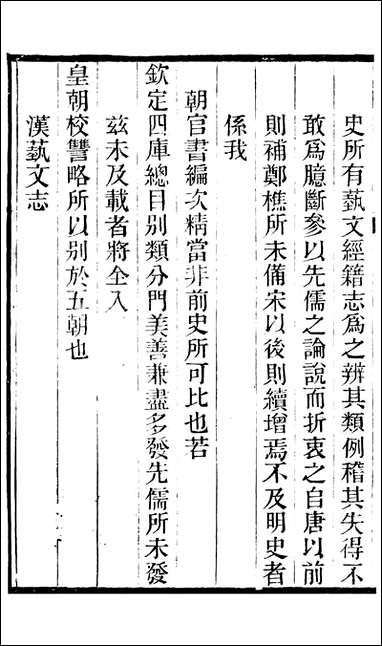 史所有藝文經籍志爲之辨其類例稽其失得不
敢爲臆斷參以先儒之論說而折衷之自唐以前
則補鄭樵所未備宋以後則續增焉不及明史者
係我
朝官書編次精當非前史所可比也若
欽定四庫總目別類分門美善兼盡多發先儒所未發
兹未及載者將全入
皇朝校讐略所以別於五朝也
漢藝文志